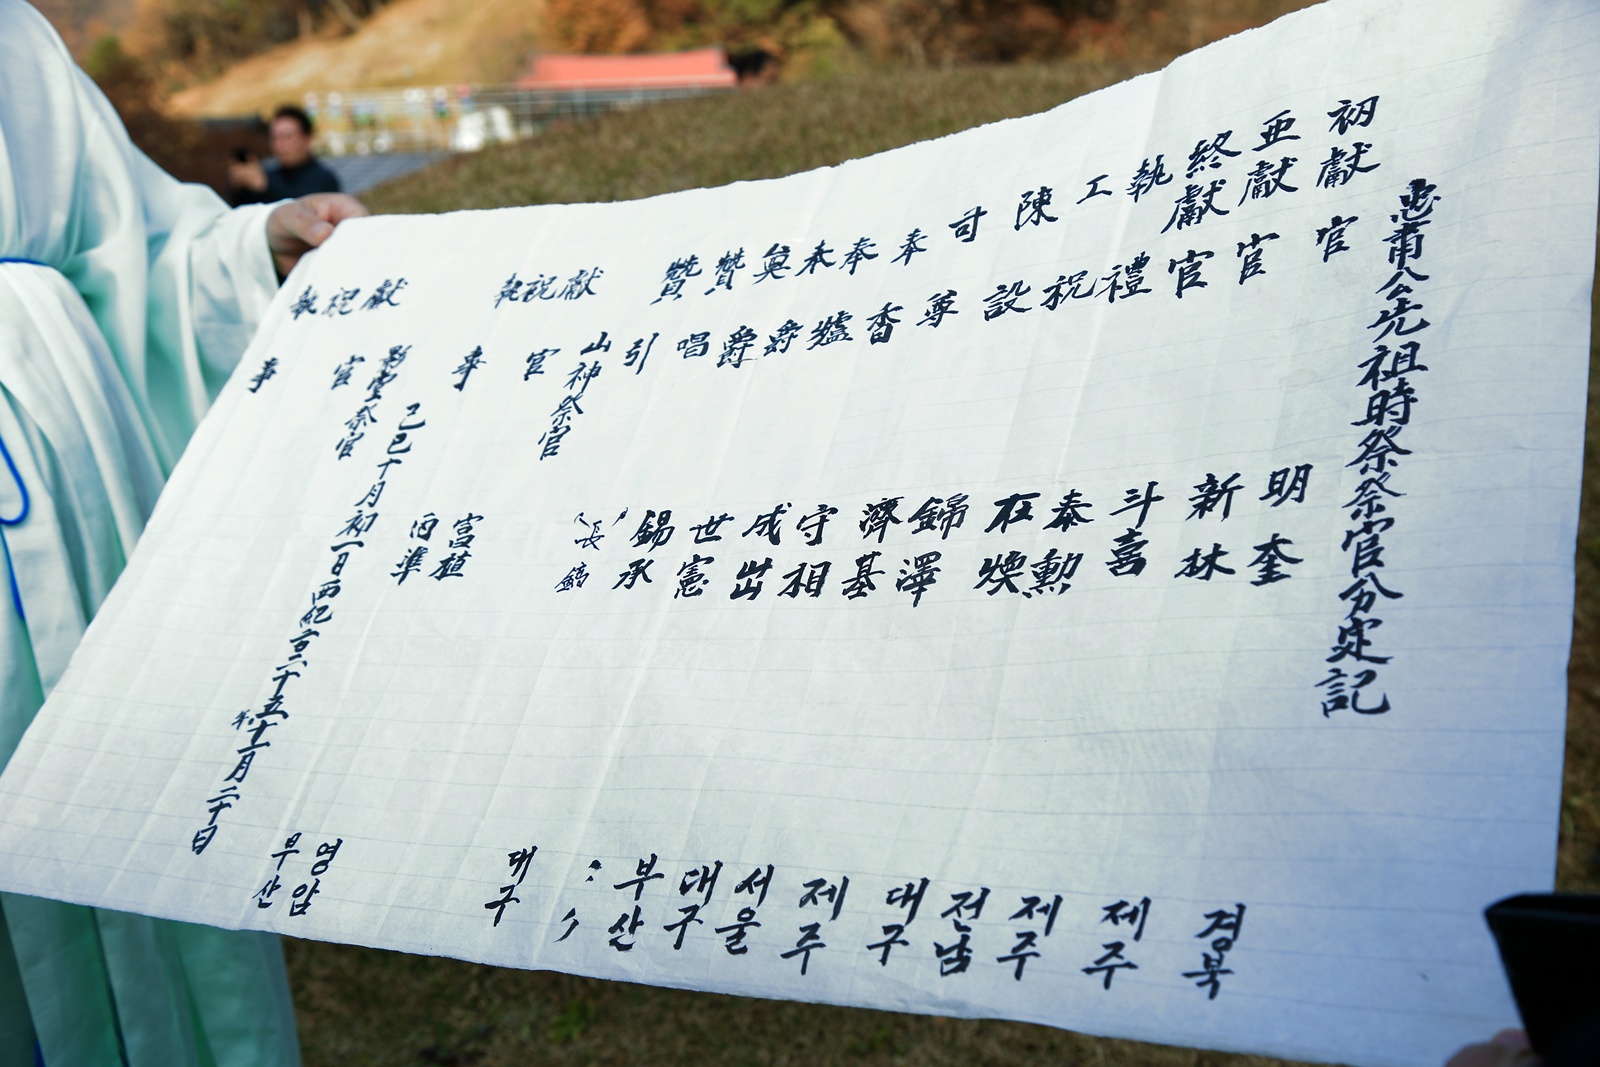 忠肅公先祖時祭祭官分定記
初獻官
亞獻官
終獻官
執禮
工祝
陳設
司尊
奉香
奉爐
奉爵
奠爵
贊唱
贊引
山神祭官
獻官
祝
執事
影堂祭官
獻官
祝
執事
明奎
新林
斗喜
泰勳
在煥
錦澤
濟基
守相
成
世憲
錫承
長鎬
富植
丙準
경북
제주
제주
전남
대구
제주
서울
대구
부산
〃
대구
영암
부산
己巳十月初一日西紀二千二十五年十一月二十日